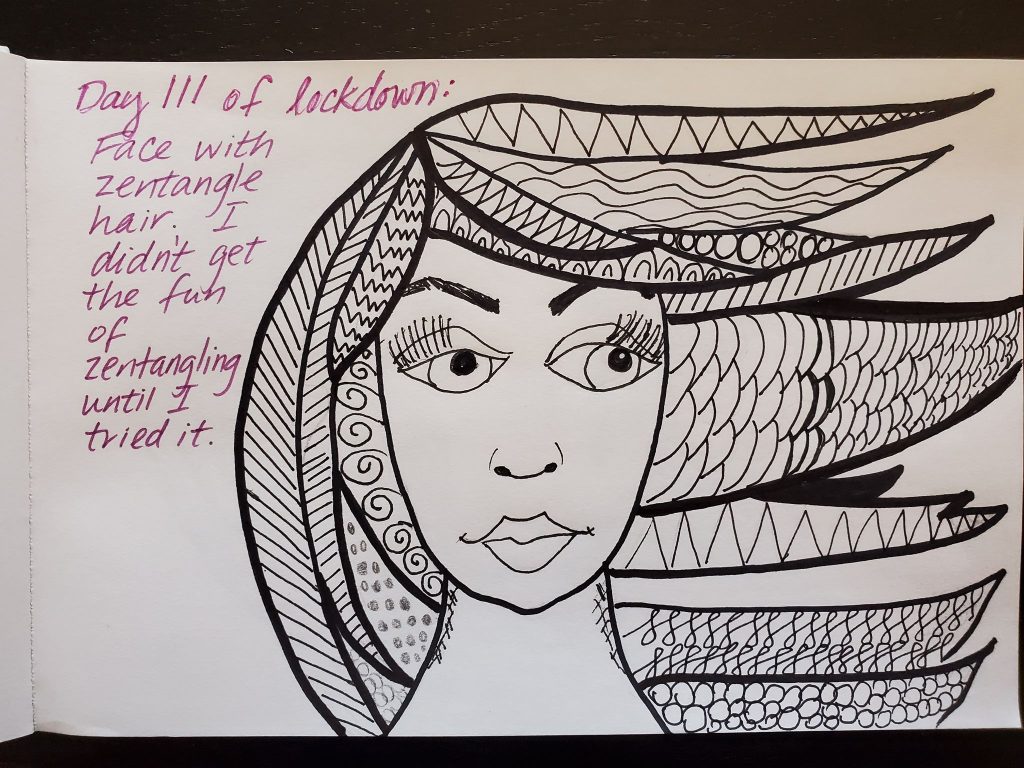 Day 111 of lockdown:
Face with
zentangle
hair. I
didn't get
the fun
of
zentangling
until I
tried it.